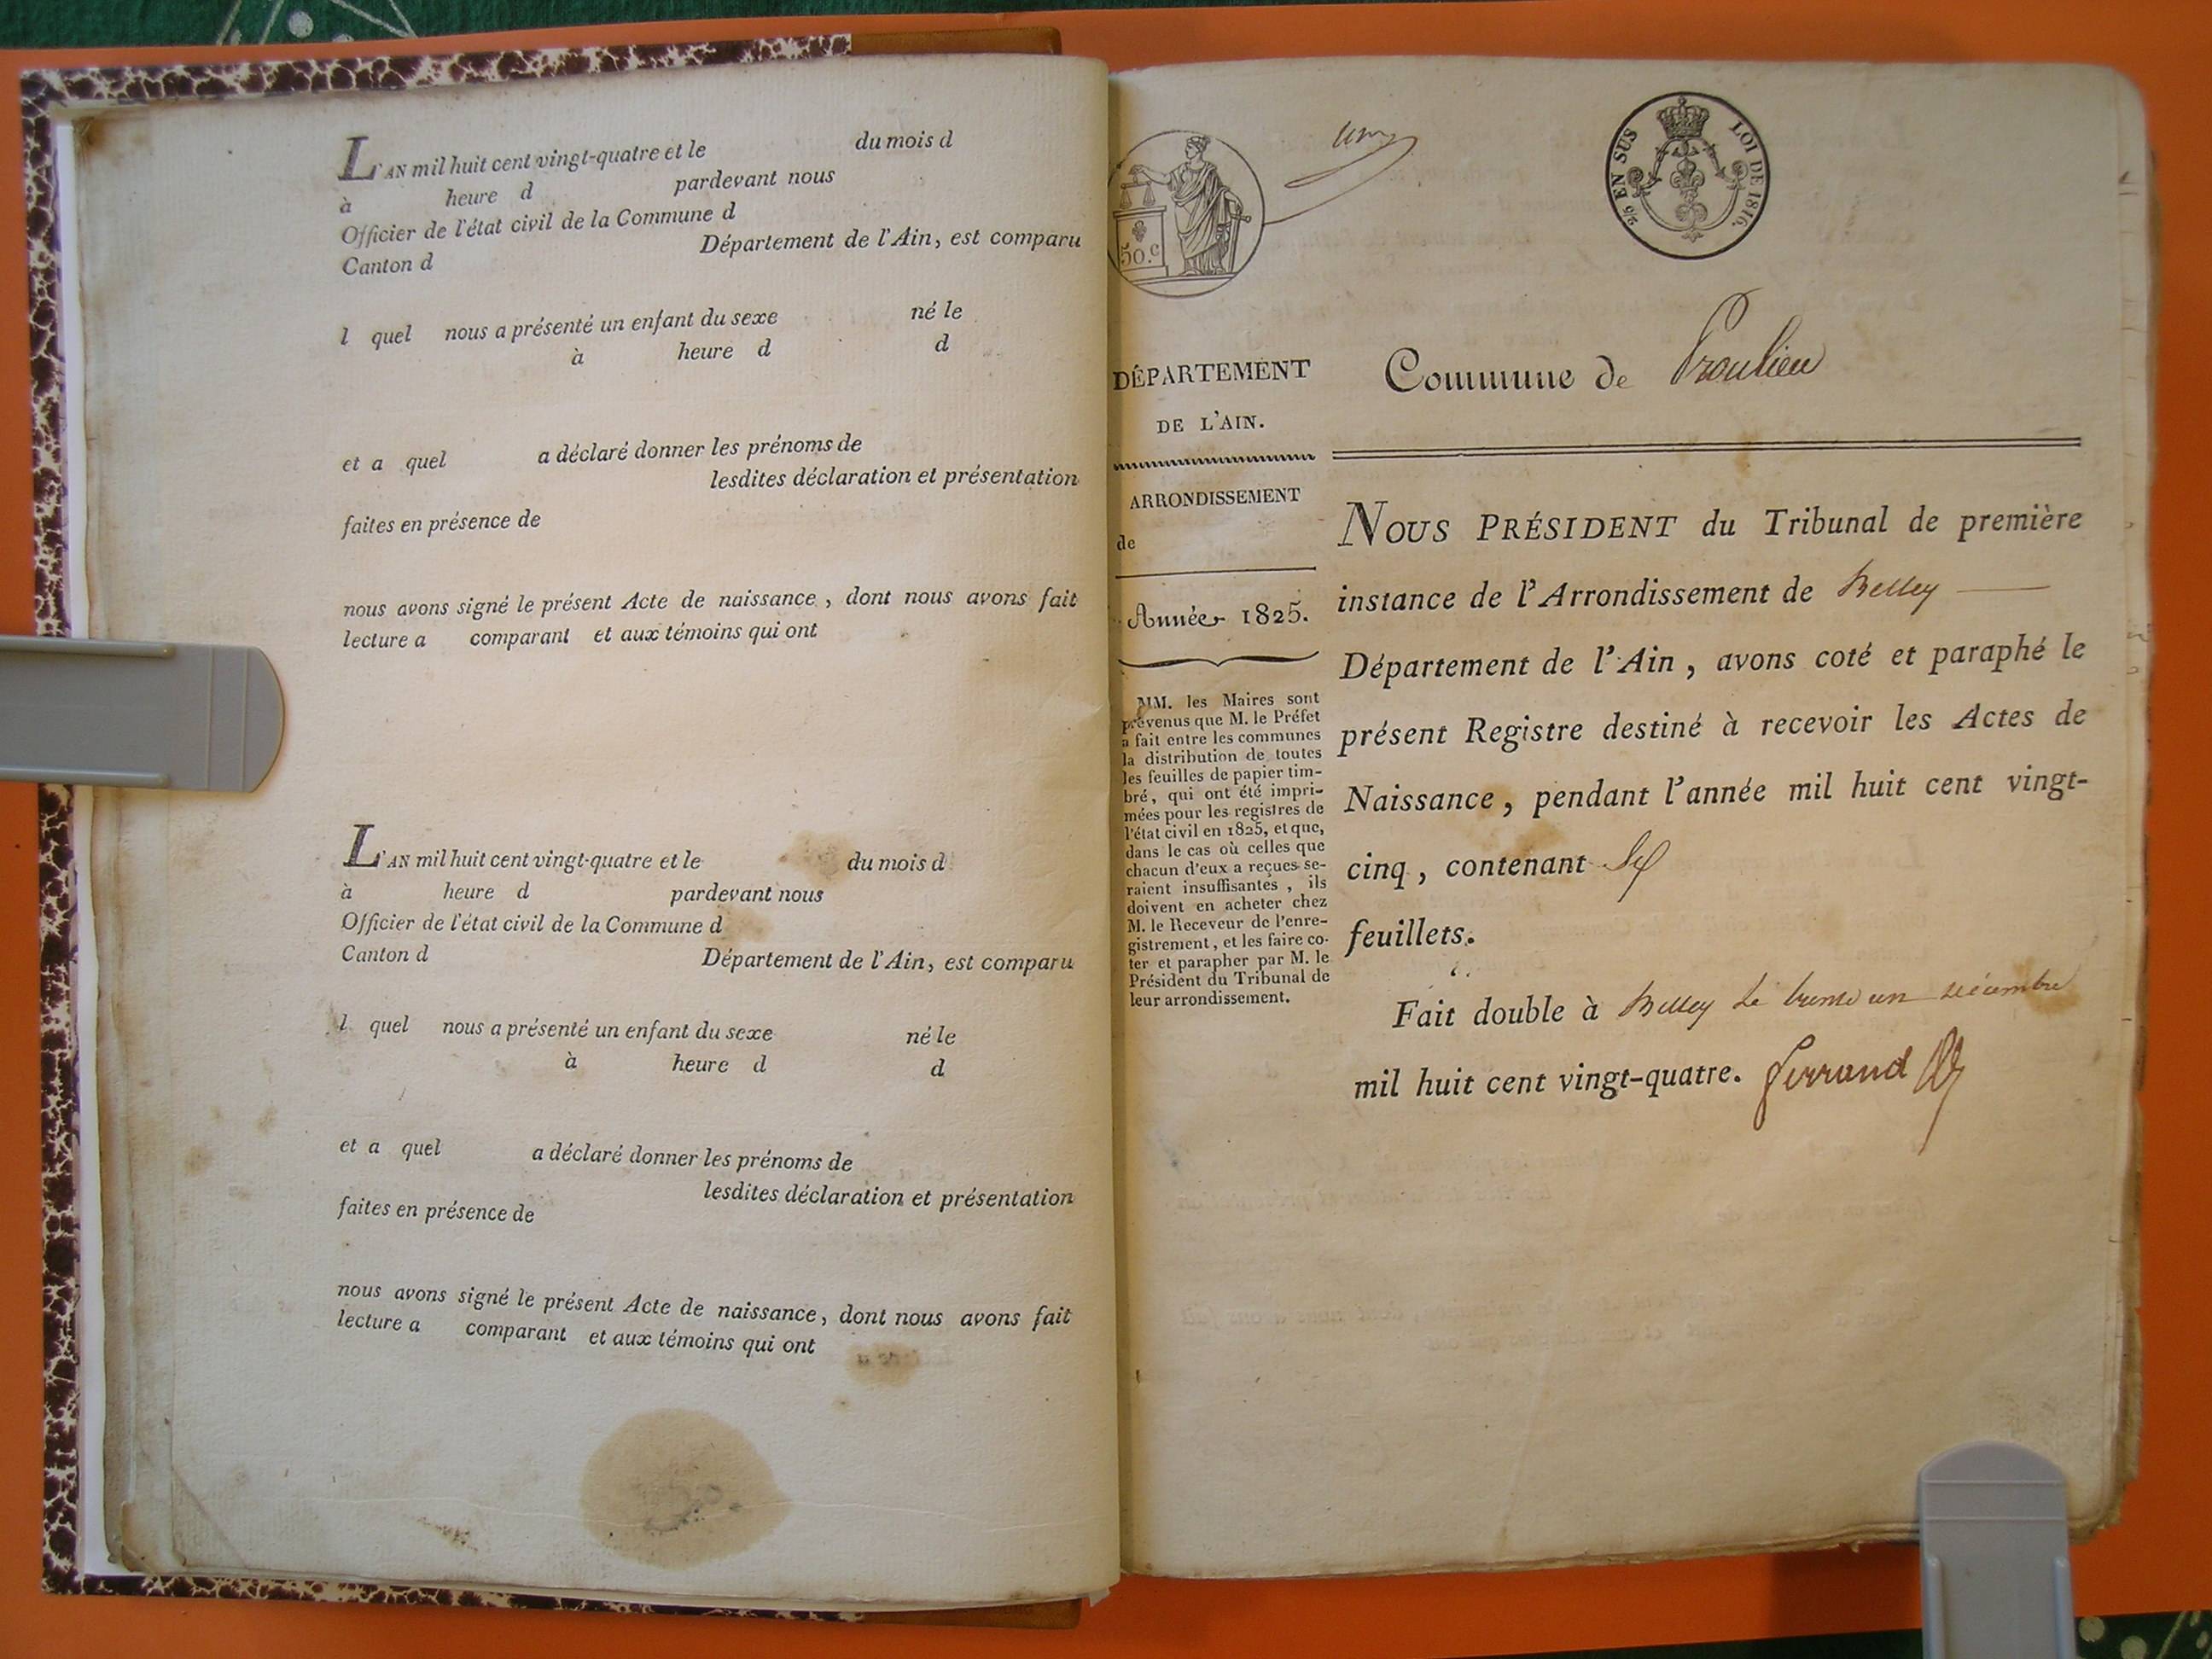 L'AN mil huit cent vingt-quatre et le du mois d
à heure d pardevant nous
Officier de l'état civil de la Commune d
Canton d Département de l'Ain, est comparu
l quel nous a présenté un enfant du sexe né le
à heure d d
et a quel a déclaré donner les prénoms de
lesdites déclaration et présentation
faites en présence de
nous avons signé le présent Acte de naissance, dont nous avons fait
lecture a comparant et aux témoins qui ont
L'AN mil huit cent vingt-quatre et le du mois d
à heure d pardevant nous
Officier de l'état civil de la Commune d
Canton d Département de l'Ain, est comparu
l quel nous a présenté un enfant du sexe né le
à heure d d
et a quel a déclaré donner les prénoms de
lesdites déclaration et présentation
faites en présence de
nous avons signé le présent Acte de naissance, dont nous avons fait
lecture a comparant et aux témoins qui ont
50.c
EN SUS LOI DE 1816.
DÉPARTEMENT
DE L'AIN.
ARRONDISSEMENT
de
Année 1825.
MM. les Maires sont
prévenus que M. le Préfet
a fait entre les communes
la distribution de toutes
les feuilles de papier tim-
bré, qui ont été impri-
mées pour les registres de
l'état civil en 1825, et que,
dans le cas où celles que
chacun d'eux a reçues se-
raient insuffisantes, ils
doivent en acheter chez
M. le Receveur de l'enre-
gistrement, et les faire co-
ter et parapher par M. le
Président du Tribunal de
leur arrondissement.
Commune de Proulieu
NOUS PRÉSIDENT du Tribunal de première
instance de l'Arrondissement de Belley
Département de l'Ain, avons coté et paraphé le
présent Registre destiné à recevoir les Actes de
Naissance, pendant l'année mil huit cent vingt-
cinq, contenant
feuillets.
Fait double à Belley le trente un décembre
mil huit cent vingt-quatre. Ferrand